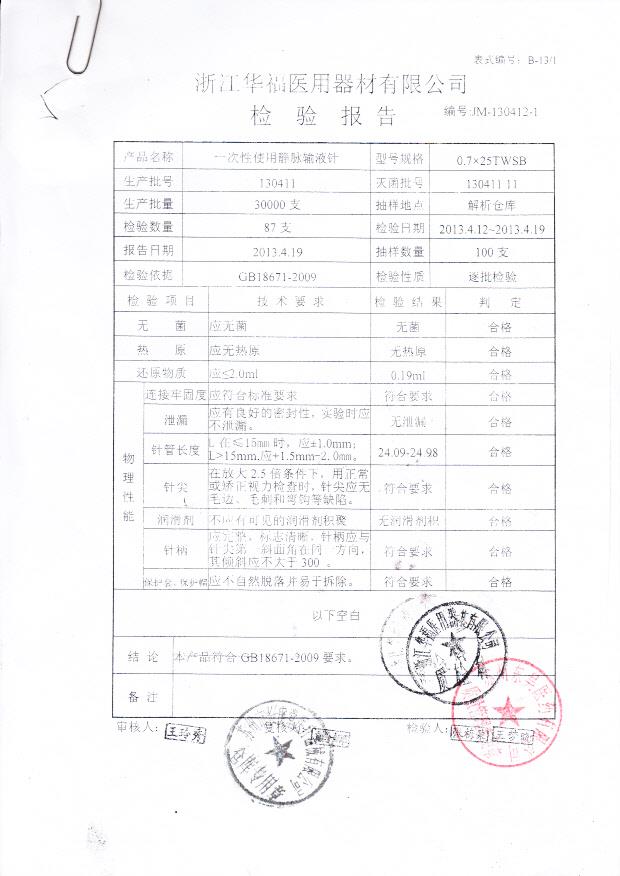 表式编号: B-13/1
浙江华福医用器材有限公司
检 验 报 告
编号:JM-130412-1
产品名称 一次性使用静脉输液针 型号规格 0.7×25TWSB
生产批号 130411 灭菌批号 130411 11
生产批量 30000 支 抽样地点 解析仓库
检验数量 87 支 检验日期 2013.4.12~2013.4.19
报告日期 2013.4.19 抽样数量 100 支
检验依据 GB18671-2009 检验性质 逐批检验
检 验 项 目 技 术 要 求 检 验 结 果 判 定
无 菌 应无菌 无菌 合格
热 原 应无热原 无热原 合格
还原物质 应≤2.0ml 0.19ml 合格
物理性能
连接牢固度 应符合标准要求 符合要求 合格
泄漏 应有良好的密封性,实验时应不泄漏。 无泄漏 合格
针管长度 L 在≤15mm 时,应±1.0mm;
L>15mm,应+1.5mm-2.0mm。 24.09-24.98 合格
针尖 在放大 2.5 倍条件下,用正常
或矫正视力检查时,针尖应无
毛边、毛刺和弯钩等缺陷。 符合要求 合格
润滑剂 不应有可见的润滑剂积聚 无润滑剂积 合格
针柄 应完整,标志清晰,针柄应与
针尖第一斜面角在同一方向,
其倾斜应不大于 300 。 符合要求 合格
保护套、保护帽 应不自然脱落并易于拆除。 符合要求 合格
以下空白
结 论 本产品符合 GB18671-2009 要求。
备 注
浙江华福医用器材有限公司
审核人: 复核人: 检验人: